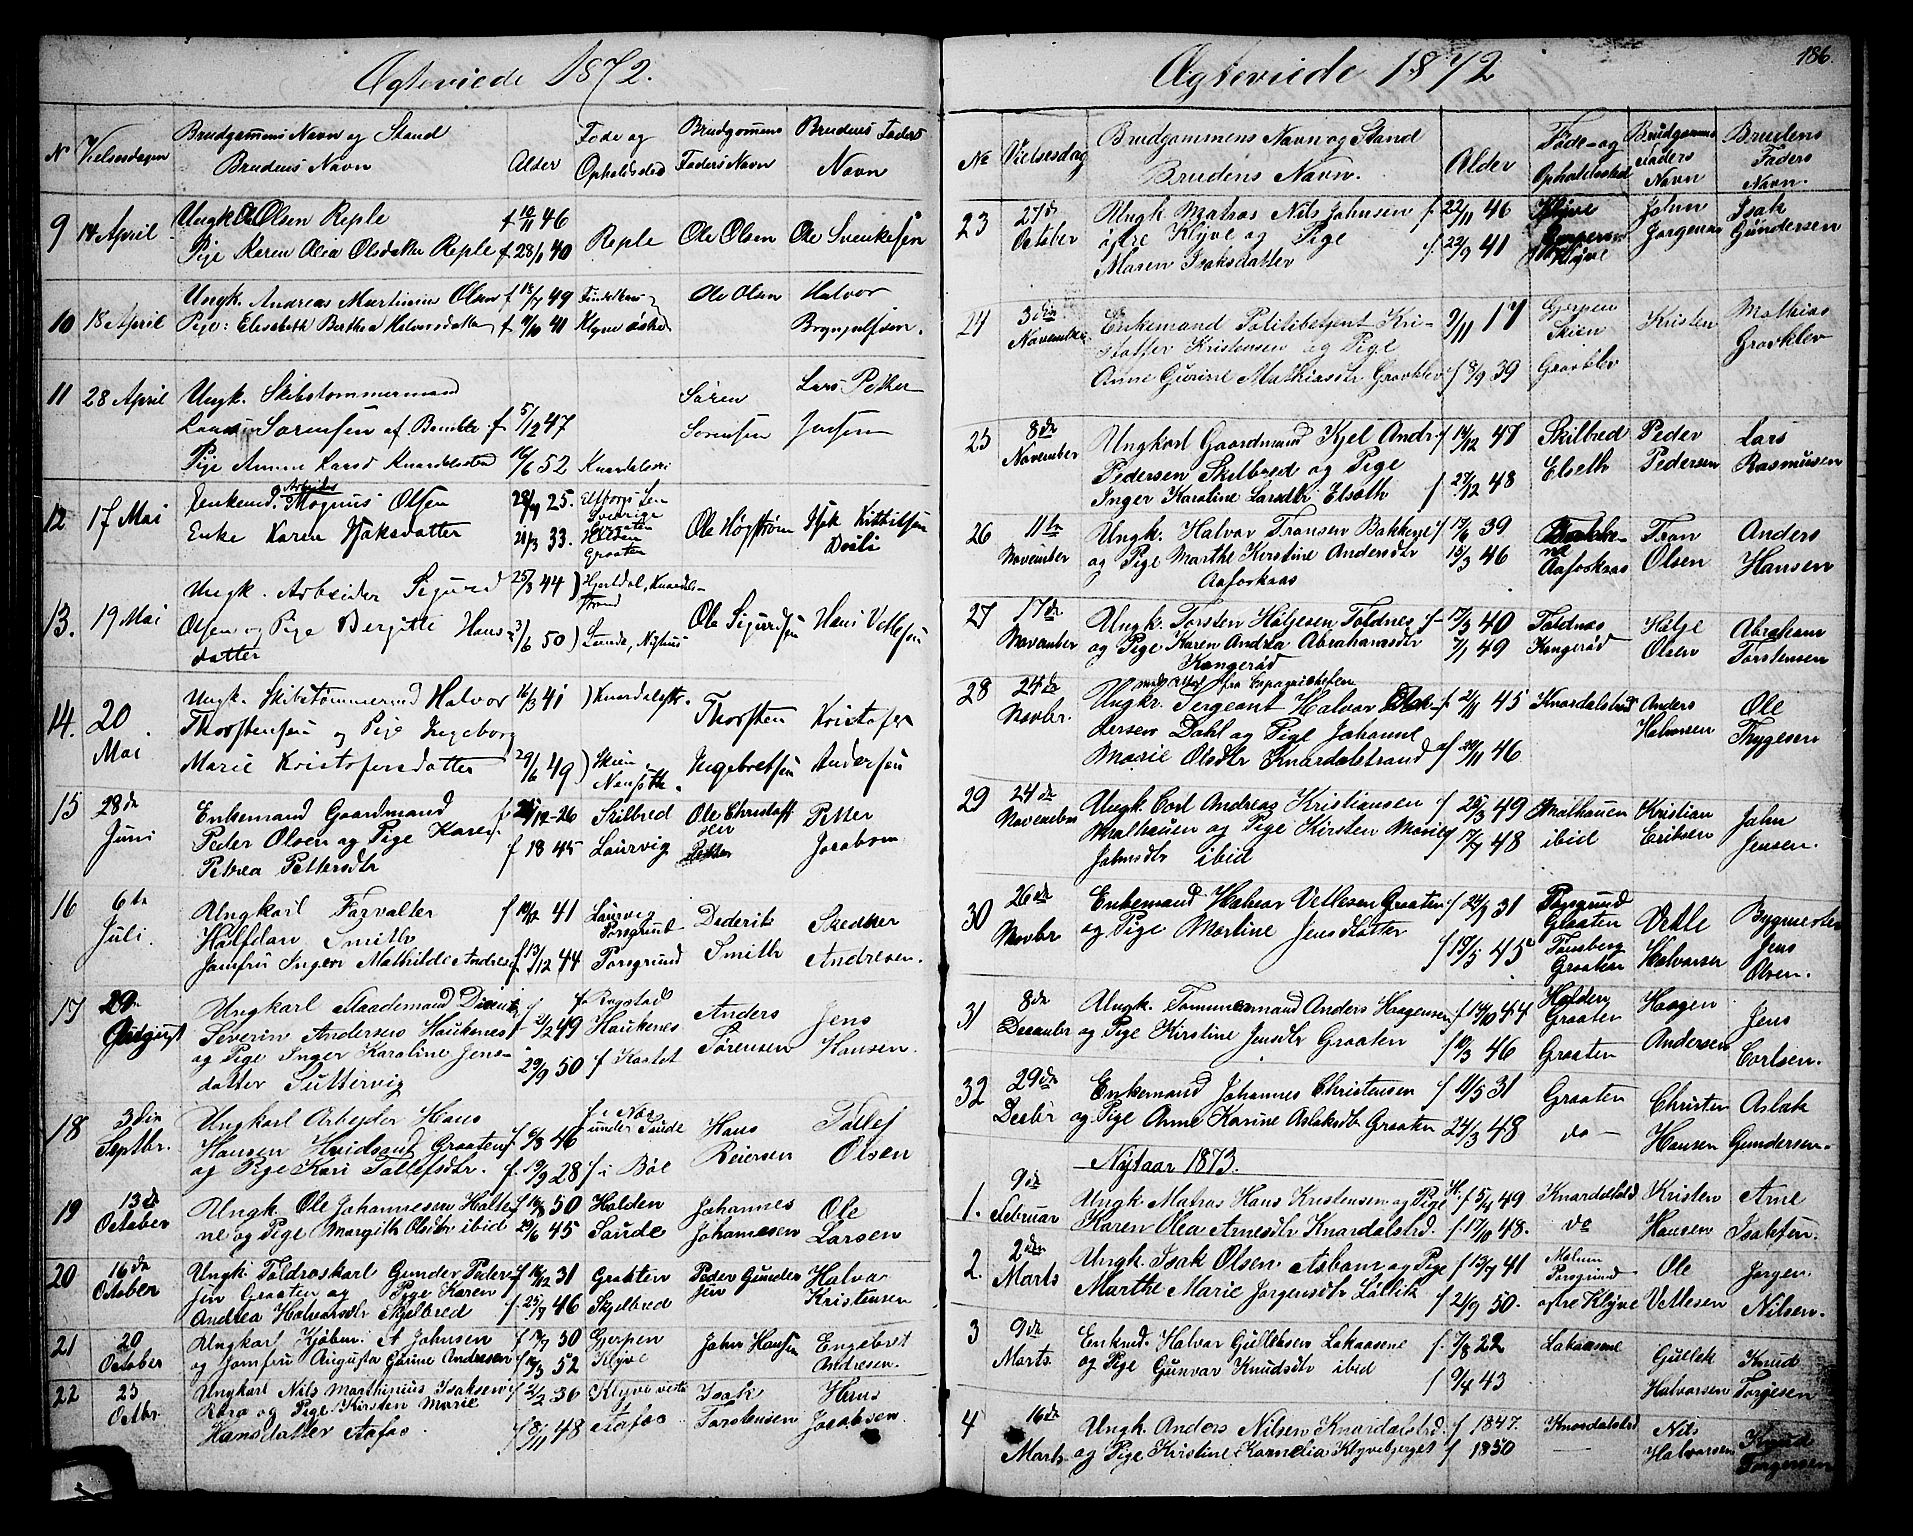 Ægteviede 1872.
N Vielsesdagen Brudgommens Navn og Stand Alder Føde og Brudgommens Brudens Faders
Brudens Navn Opholdsted Faders Navn Navn
9 14 April Ungk Ole Olsen Reple f 46 Reple Ole Olsen Ole Svenkesen
Pige Karen Olea Olsdatter Reple f 28/1 40
10 18 April Ungk. Andreas Martinius Olsen f 18/7 49 Ole Olsen Halvor
Pige: Elisabeth Berthea Halvorsdatter f 9/10 41 Klyve østre Brynjulfsen.
11 28 April Ungk. Skibstømmermand Søren Lars Petter
Sørensen af Bamble f 5/12 47 Sørensen Jensen
Pige Anne Larsd Knardalstrand 16/6 52
12 17 Mai Enkemd. Arbeider Magnus Olsen 25. Sverige Ole Høgstrøm Isak Kittilsen
Enke Karen Isaksdatter 21/3 33. Graaten
13. 19 Mai Ungk. Arbeider Sigurd 25/3 44 Hjertdal, Ole Sigurdsen Hans Vetlesen
Olsen og Pige Bergitte Hans- 3/6 50 Lunde,
datter
14. 20 Mai Ungk. Skibstømmermd Halvor 16/3 41 Knardalstr. Thorsten Kristofer
Thorstensen og Pige Ingeborg
Marie Kristofersdatter 29/6 49 Skien Ingebretsen Andersen
15 28de Juni Enkemand Gaardmand f 12-26 Skilbred Ole Christoff Petter
Peder Olsen og Pige Karen sen
Petrea Pettersdtr f 18 45 Laurvig Jacobsen
16 6te Juli. Ungkarl Forvalter f 41 Laurvig Diderik Skedker
Halfdan Smith Porsgrund
Jomfru Inger Mathilde Andres f 13/12 44 Porsgrund Smith Andresen.
17 29de August Ungkarl Staademand f Anders Jens
Severin Andersen Haukenes f 2/2 49 Haukenes
og Pige Inger Karoline Jens- Sørensen Hansen.
datter Suttervig 29/9 50 f
18 3die Septbr. Ungkarl Arbejder Hans f i Næs Hans Tollef
under Saude
Hansen Hvidsand Graaten f 6/8 46
og Pige Kari Tollefsdtr. f. 19/9 28 f i Bøe Reiersen Olsen
19 13de October Ungk. Ole Johannesen Holte f 50 Holden Johannes Ole
ne og Pige Margith Olsdtr ibid 29/6 45 Saude Johannesen Larsen
20 16de October Ungk. Toldroskarl Gunder Peder f 16/12 31 Graaten Peder Gunder Halvor
sen Graaten og Pige Karen sen
Andrea Halvorsdtr Skjelbred f. 25/7 46 Skjelbred Kristensen
21 20 October Ungkarl Kjøbm. A Johnsen f 30 Gjerpen John Hansen Engebret
og Jomfru Augusta Gurine Andresen f 52 Klyve Andresen.
22 25 Octbr. Ungkarl Nils Marthinius Isaksen f 2/2 36 Klyve vestr Isak Hans
og Pige Kirsten Marie
Hansdatter Aafos. f 8/11 48 Aafos Torstensen Jacobsen.

Ægteviede 1872
186
No Vielsesdag Brudgommens Navn og Stand Alder Føde- og Brudgoms Brudens
Brudens Navn. Opholdssted Faders Navn Faders Navn.
23 27de October Ungk. Matros Nils Johnsen f. 22/11 46 Klyve John Isak
østre Klyve og Pige f. 22/9 41 Gjerpen Jørgensen Gundersen
Maren Isaksdatter Klyve
24 3die November Enkemand Politibetjent Kri- 9/11 17 Gjerpen Kristen Mathias
stoffer Kristensen og Pige Skien
Anne Gurine Mathiasdtr Gravklev f 8/9 39 Gravklev Gravklev
25 8de November Ungkarl Gaardmand Kjel Andr. f 14/12 47 Skilbred Peder Lars
Pedersen Skilbred og Pige Elseth Pedersen Rasmusen
Inger Karoline Larsdtr Elseth f. 27/12 48
26 11te November Ungk. Halvor Fransen Bakkene f 17/6 39 Bakke- Fran Anders
og Pige Marthe Kirstine Andersdtr 15/3 46 ne Aafoskaas Olsen Hansen
Aafoskaas
27 17de November Ungk. Torsten Høljesen Toldnes f 17/3 40 Toldnæs Hølje Abraham
og Pige Karen Andrea Abrahamsdtr 7/1 49 Kongerød Olsen Torstensen
Kongerød
28 24de Novbr. med Attest fra Copagnichefen
Ungkr. Sergeant Halvor An- f. 2/11 45 Knardalstrd Anders Ole
dersen Dahl og Pige Johanne Halvorsen Thygesen
Marie Olsdtr Knardalstrand af 29/11 46
29 24de November Ungk. Carl Andreas Kristiansen f 25/3 49 Malhauen Kristian John
Malhauen og Pige Kirsten Marie f 17/7 48 ibid Eriksen Jensen.
Johnsdtr ibid
30 26de Novbr Enkemand Halvor Vetlesen Graaten f 24/9 31 Porsgrund Vetle Bygmester
Graaten
og Pige Martine Jensdatter f 19/5 45 Tønsberg Halvorsen Jens
Graaten Olsen.
31 8de December Ungk. Tømmermand Anders Haagensen f 14/10 44 Holden Haagen Jens
Graaten
og Pige Kirstine Jensdtr Graaten f 10/3 46 Graaten Andersen Carlsen.
32 29de Decbr Enkemand Johannes Christensen f 11/5 31 Graaten Christen Aslak
og Pige Anne Karine Aslaksdtr Graaten 24/3 48 do — Hansen Gundersen.
Nytaar 1873.
1. 9de Februar Ungk. Matros Hans Kristensen og Pige f 5/4 49 Knardalstrd Kristen Arne
Karen Olea Arnesdtr Knardalstrd. f 17/10 48. do Hansen Isaksen.
2. 2den Marts Ungk. Isak Olsen Aasbom og Pige f 13/7 41 Melum Ole Jørgen
Porsgrund
Marthe Marie Jørgensdtr Løllik f 2/9 50. østre Klyve Vetlesen Nilsen.
3 9de Marts. Enkmd. Halvor Gulleksen Lakaasene f. 7/8 22 Lakaasene Gullek Knud
og Pige Gunvor Knudsdtr ibid f 9/4 43 Halvorsen Torgesen
4 16de Marts Ungk. Anders Nilsen Knardalstrd. f 1847. Knardalstrd Nils Knud
og Pige Kirstine Kornelia Klyvebjerget f 1850 — Halvorsen Torgersen